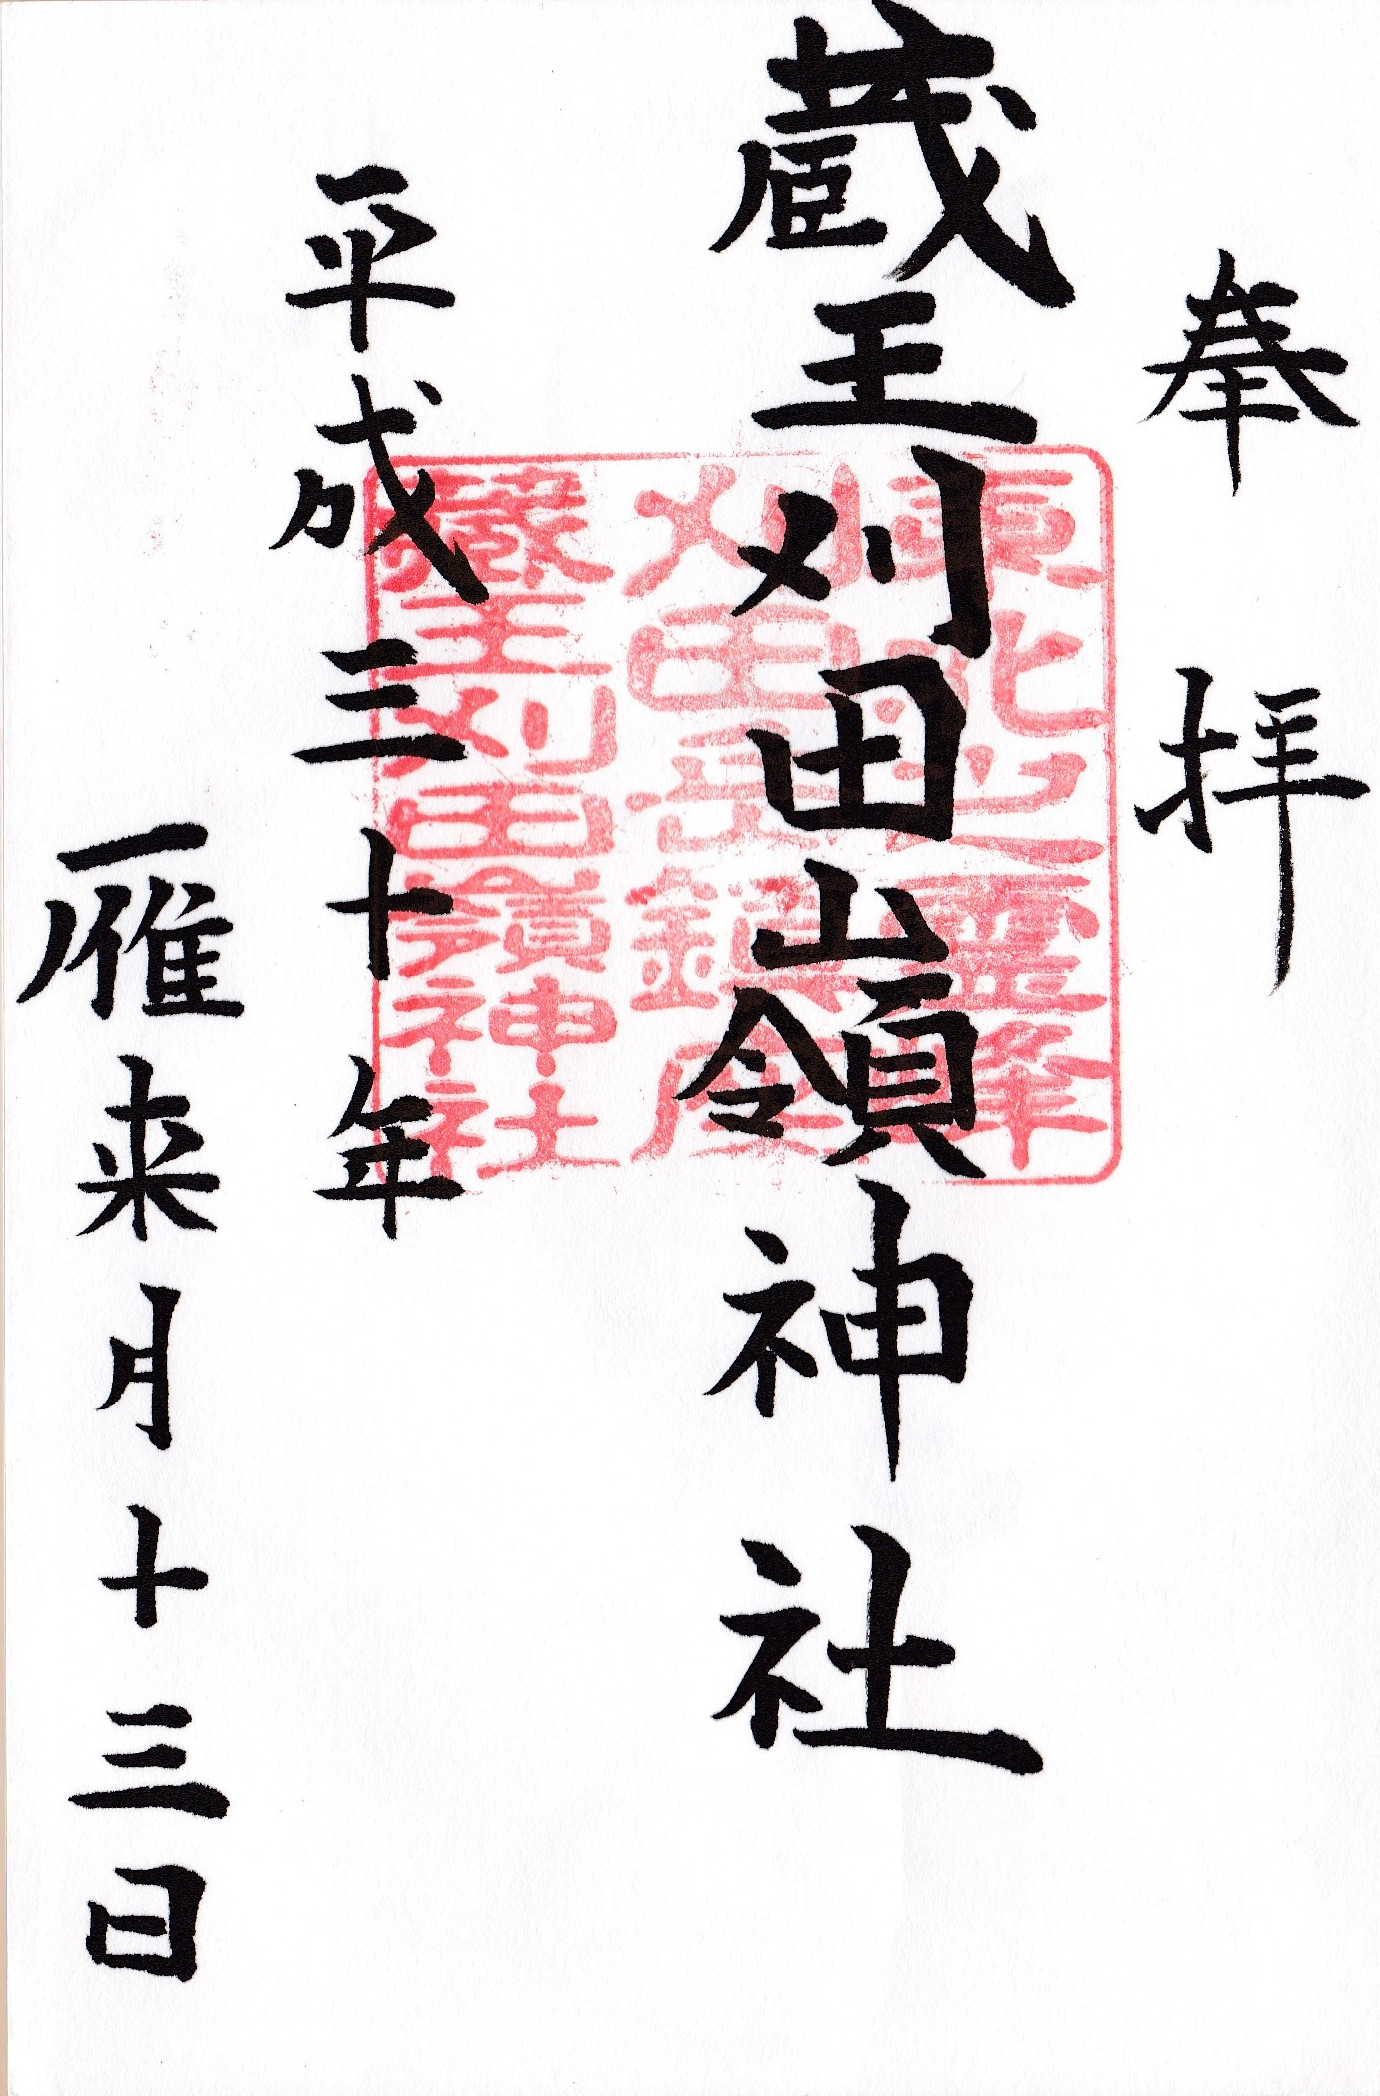 奉拝
蔵王刈田嶺神社
平成三十年
雁来月十三日
東北之霊峰
刈田岳鎮座
蔵王刈田嶺神社